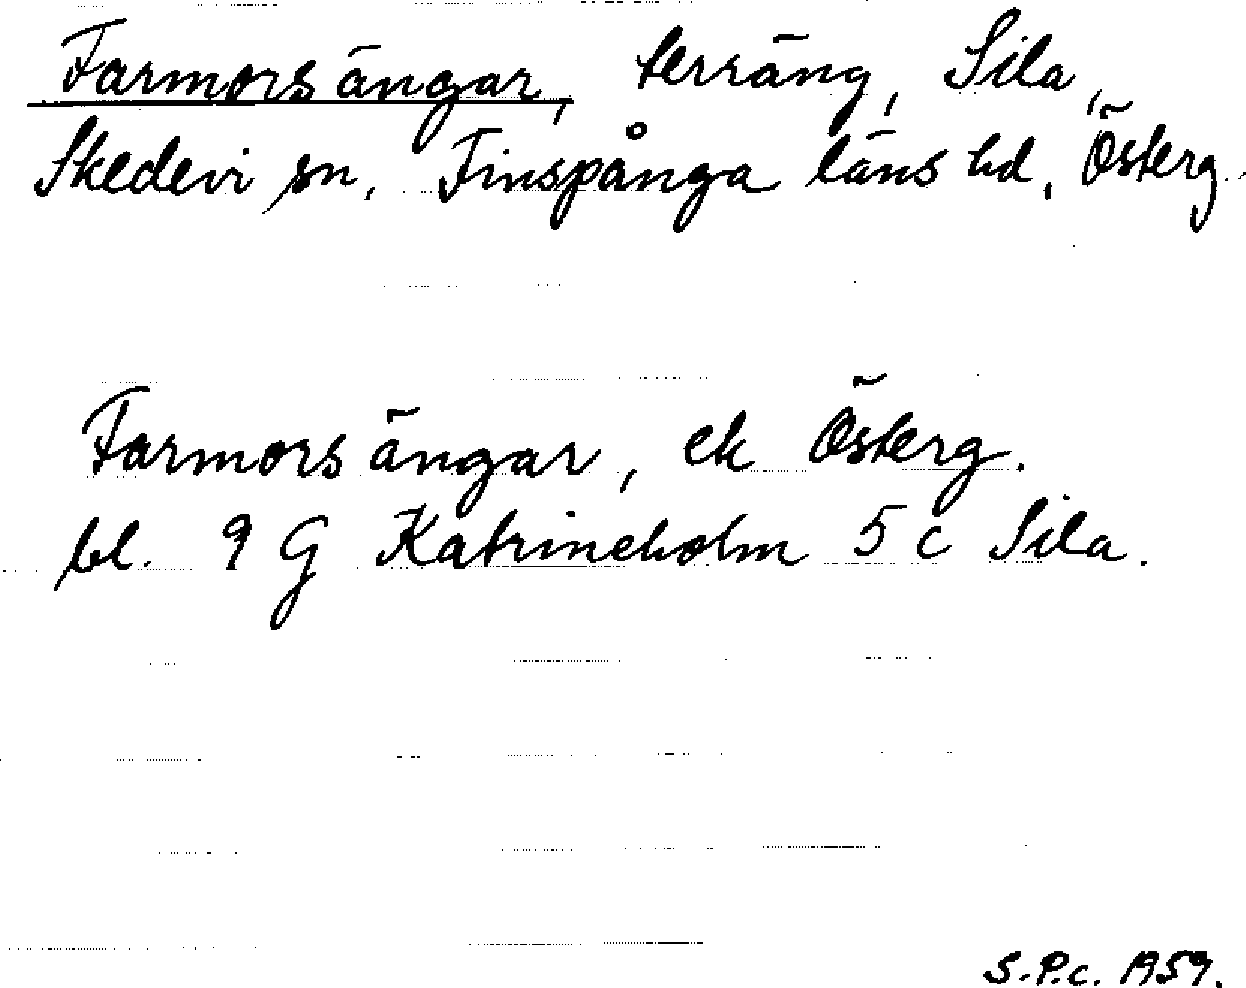 Farmors ängar, terräng, Sila,
Skedevi sn, Finspånga läns hd, Österg.
Farmors ängar, ek Österg.
bl. 9 G Katrineholm 5 c Sila.
S.P.c. 1959.